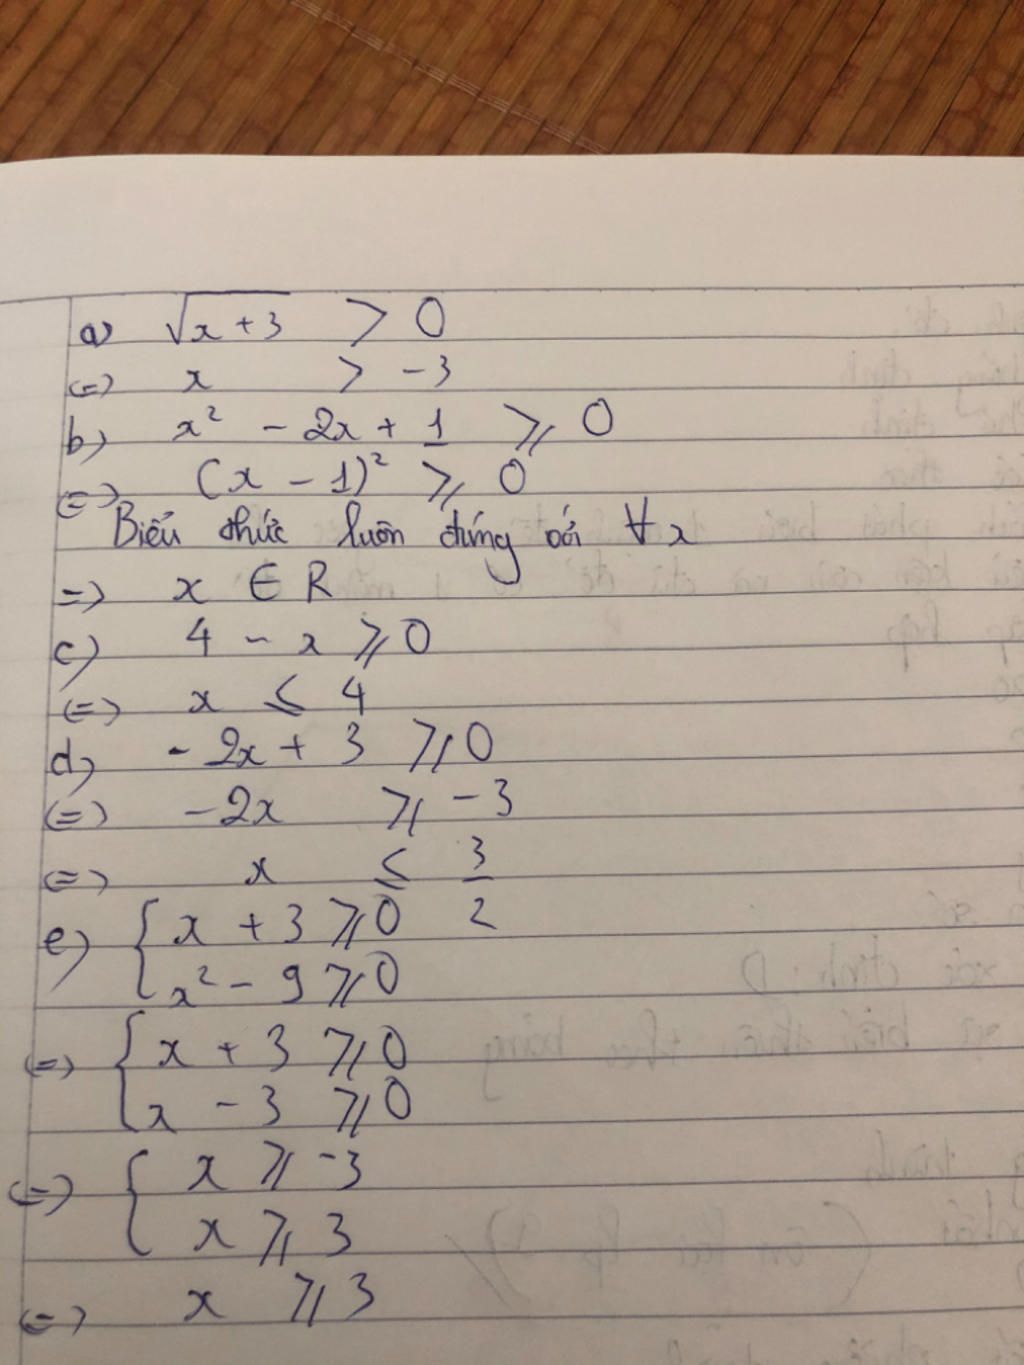 a) √x + 3 > 0
(=) x > -3
b) x² - 2x + 1 ⩾ 0
(=) (x - 1)² ⩾ 0
Biểu thức luôn đúng với ∀x
=) x ∈ R
c) 4 - x ⩾ 0
(=) x ≤ 4
d) - 2x + 3 ⩾ 0
(=) -2x ⩾ -3
(=) x ≤ 3/2
e) { x + 3 ⩾ 0
x² - 9 ⩾ 0
(=) { x + 3 ⩾ 0
x - 3 ⩾ 0
(=) { x ⩾ -3
x ⩾ 3
(=) x ⩾ 3